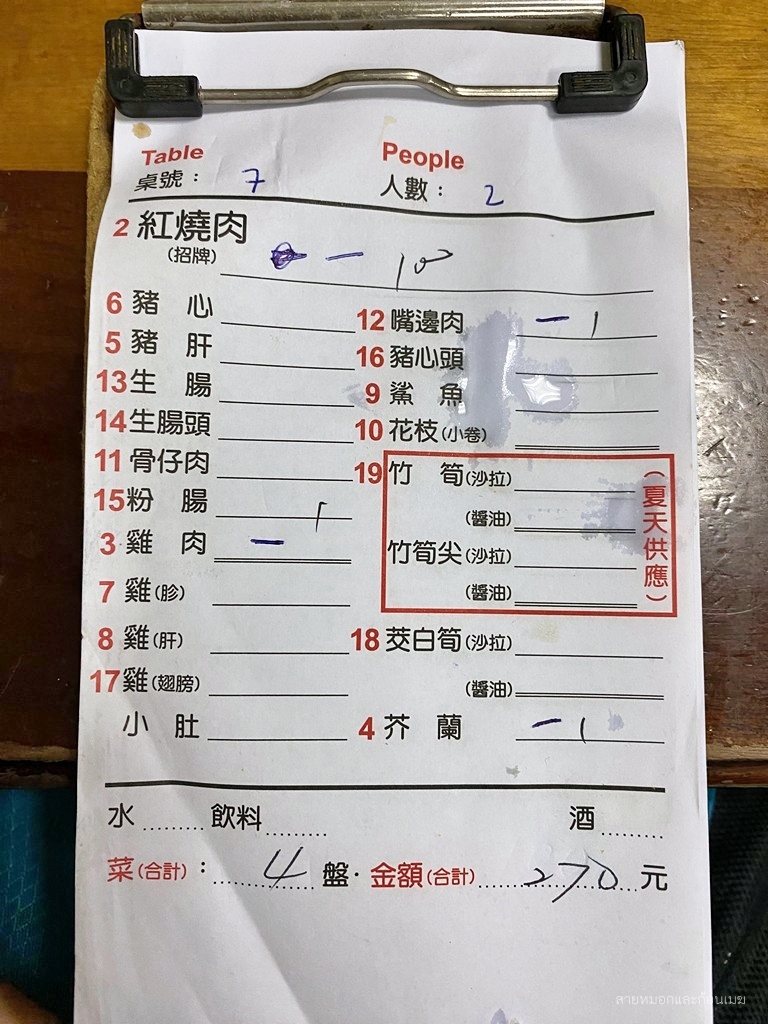 Table People
桌號： 7 人數： 2
2 紅燒肉
(招牌) 一 100
6 豬 心
12 嘴邊肉 一 1
5 豬 肝
16 豬心頭
13 生 腸
9 鯊 魚
14 生腸頭
10 花枝(小卷)
11 骨仔肉
19 竹 筍(沙拉)
15 粉 腸
(醬油)
3 雞 肉 一 1
竹筍尖(沙拉)
7 雞(胗)
(醬油)
(夏天供應)
8 雞(肝)
18 茭白筍(沙拉)
17 雞(翅膀)
(醬油)
小 肚
4 芥 蘭 一 1
水 飲料 酒
菜(合計)： 4 盤· 金額(合計) 270 元
สายหมอกและก้อนเมฆ